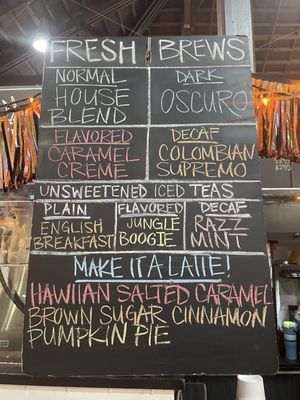 FRESH BREWS
NORMAL
HOUSE
BLEND
DARK
OSCURO
FLAVORED
CARAMEL
CREME
DECAF
COLOMBIAN
SUPREMO
UNSWEETENED ICED TEAS
PLAIN
ENGLISH
BREAKFAST
FLAVORED
JUNGLE
BOOGIE
DECAF
RAZZ
MINT
MAKE IT A LATTE!
HAWIIAN SALTED CARAMEL
BROWN SUGAR CINNAMON
PUMPKIN PIE